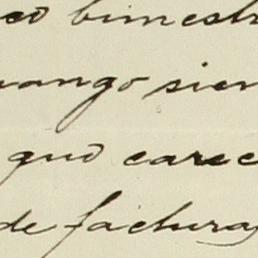 co bimestr
uango sien
que carec
de facturas